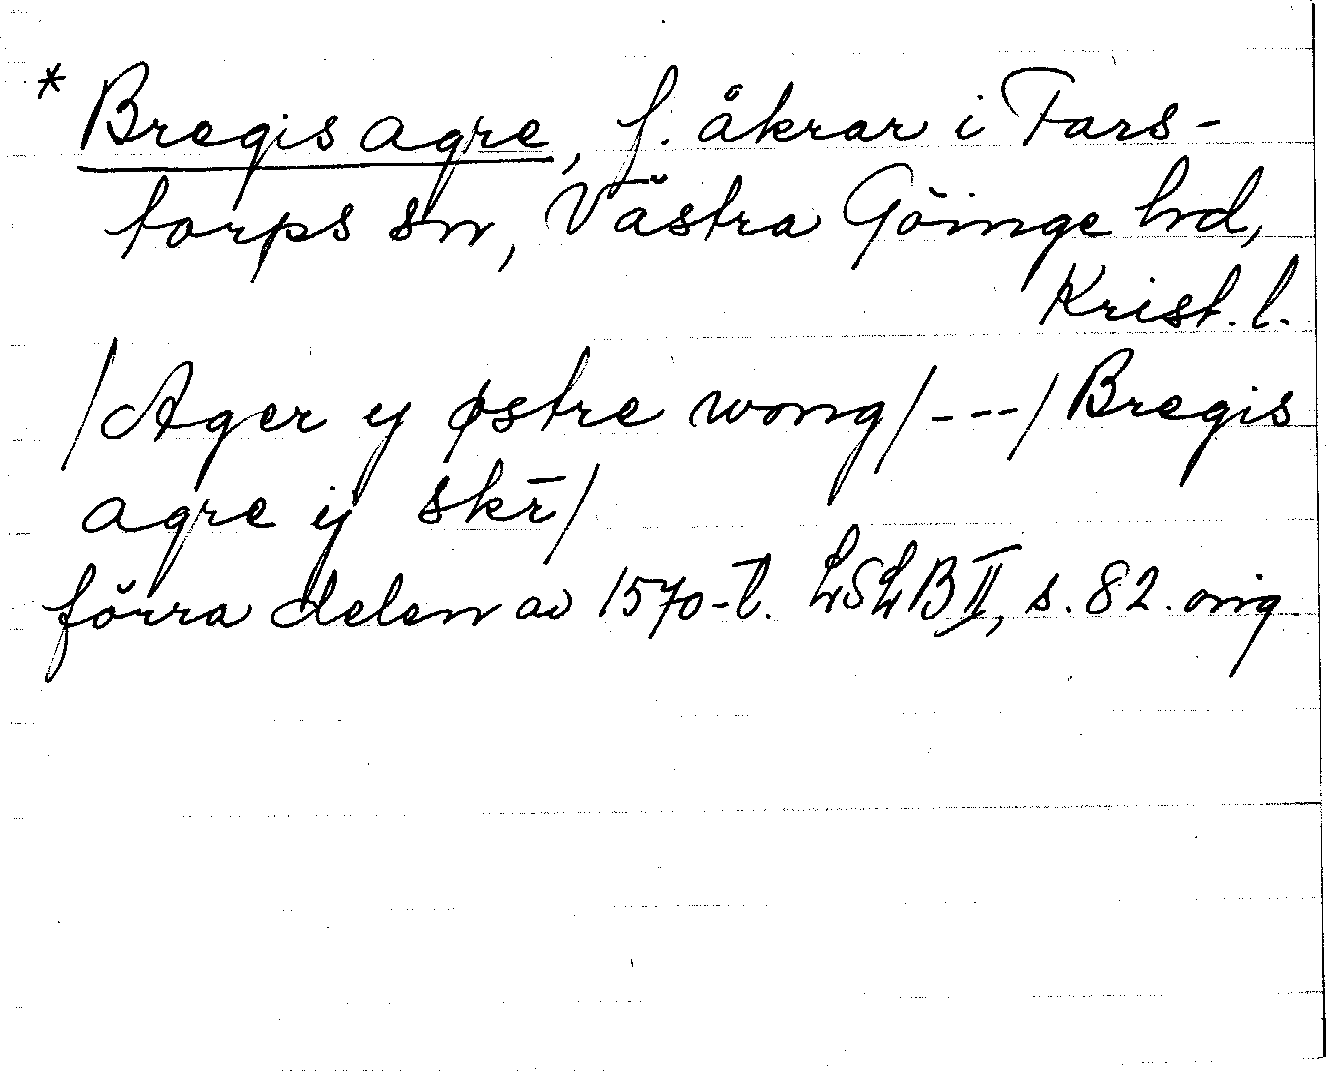 * Bregis agre, f. åkrar i Fars-
torps sn, Västra Göinge hd,
Krist. l.
/Ager y østre wong/---/Bregis
agre ij skr̄/
förra delen av 1570-t. LSLB II, s. 82. orig